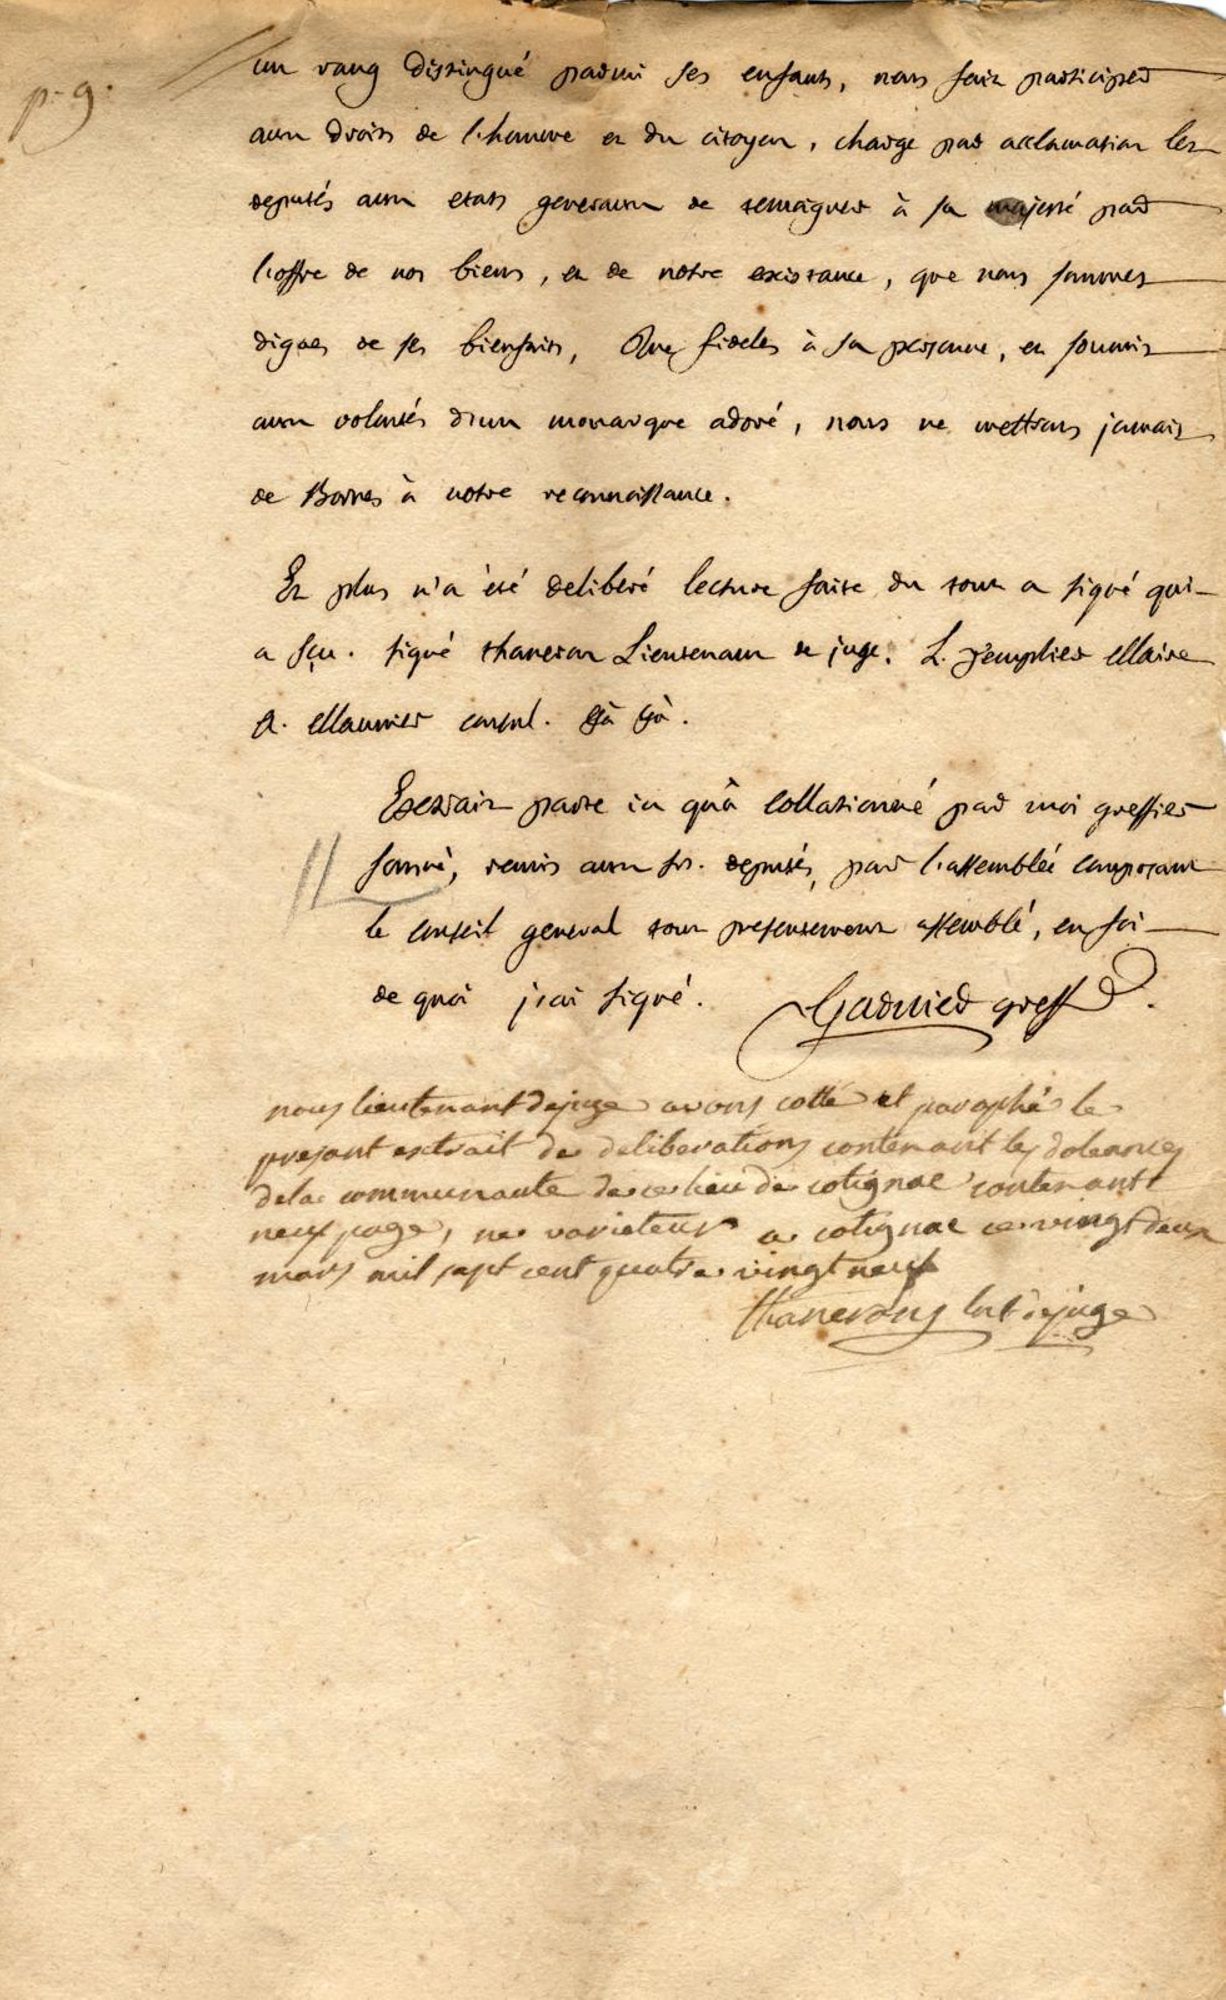 p. 9.
un rang distingué parmi ses enfants, nous fait participer
aux droits de l'homme et du citoyen, charge par acclamation les
deputés aux etats generaux de temoigner à sa majesté par
l'offre de nos biens, et de notre existance, que nous sommes
dignes de ses bienfaits, Que fideles à sa personne, et soumis
aux volontés d'un monarque adoré, nous ne mettrons jamais
de Bornes à notre reconnoissance.
Et plus n'a été deliberé lecture faite du tout a signé qui
a sçu. signé thaneron Lieutenant de juge. L. templier Maire
A. Maunier consul.
Extrait parte in quà Collationné par moi greffier
soussé, remis aux srs. deputés, par l'assemblée composant
le conseil general tout presentement assemblé, en foi
de quoi j'ai signé. Garnier greff.
nous lieutenant dejuge avons cotté et paraphé le
presant extrait de deliberations contenant les doleances
dela communauté de ce lieu de cotignac contenant
neuf page, ne varietur a cotignac ce vingt deux
mars mil sept cent quatre vingt neuf
thaneron lnt dejuge